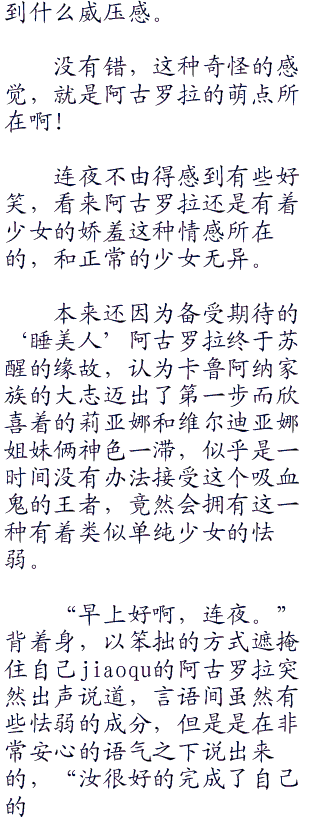 到什么威压感。
没有错，这种奇怪的感
觉，就是阿古罗拉的萌点所
在啊！
连夜不由得感到有些好
笑，看来阿古罗拉还是有着
少女的娇羞这种情感所在
的，和正常的少女无异。
本来还因为备受期待的
‘睡美人’阿古罗拉终于苏
醒的缘故，认为卡鲁阿纳家
族的大志迈出了第一步而欣
喜着的莉亚娜和维尔迪亚娜
姐妹俩神色一滞，似乎是一
时间没有办法接受这个吸血
鬼的王者，竟然会拥有这一
种有着类似单纯少女的怯
弱。
“早上好啊，连夜。”
背着身，以笨拙的方式遮掩
住自己jiaoqu的阿古罗拉突
然出声说道，言语间虽然有
些怯弱的成分，但是是在非
常安心的语气之下说出来
的，“汝很好的完成了自己
的